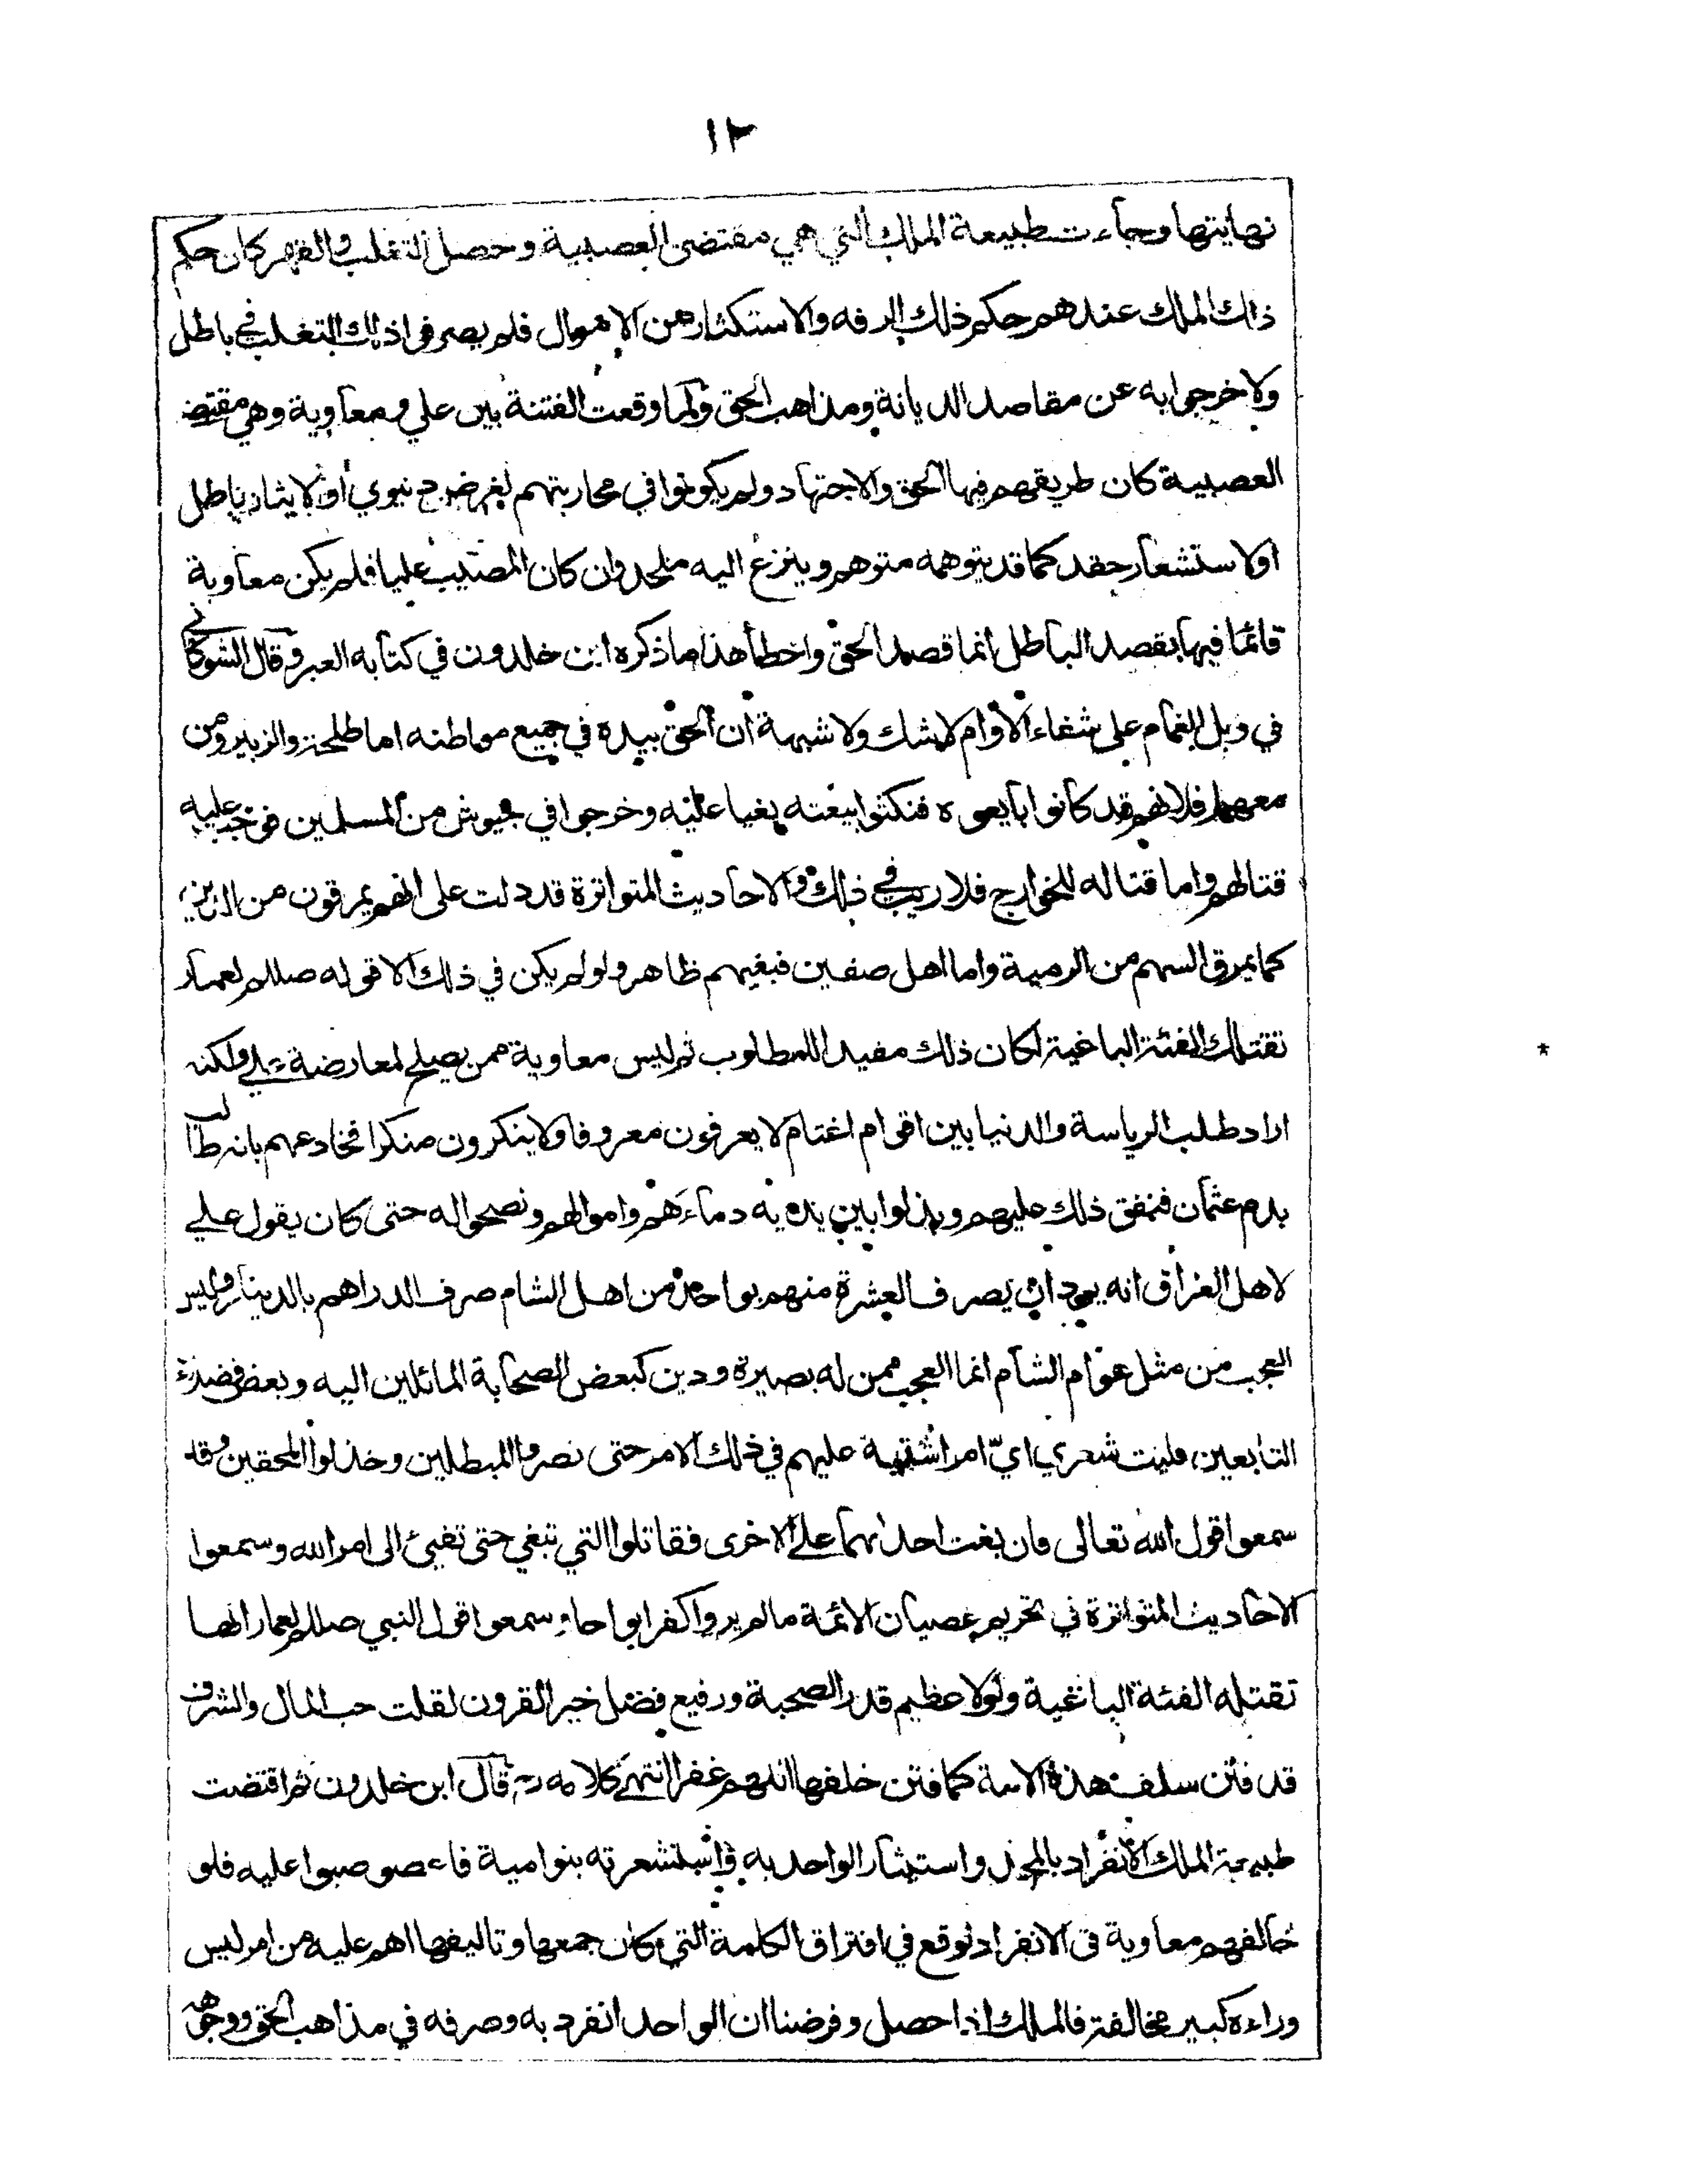 ١٢
نهايتها وجاءت طبيعة الملك التي هي مقتضى العصبية وحصل التغلب والقهر كان حكم
ذلك الملك عندهم حكم ذلك الرفه والاستكثار من الاموال فلم يصرفوا ذلك التغلب في باطل
ولا خرجوا به عن مقاصد الديانة ومذاهب الحق ولما وقعت الفتنة بين علي ومعاوية وهي مقتضى
العصبية كان طريقهم فيها الحق والاجتهاد ولم يكونوا في محاربتهم لغرض دنيوي او لايثار باطل
او لاستشعار حقد كما قد يتوهمه متوهم وينزع اليه ملحد وان كان المصيب عليا فلم يكن معاوية
قائما فيها بقصد الباطل انما قصد الحق واخطأ هذا ما ذكره ابن خلدون في كتابه العبر وقال الشوكاني
في وبل الغمام على شفاء الأوام لا شك ولا شبهة ان الحق بيده في جميع مواطنه اما طلحة والزبير ومن
معهما فلانهم قد كانوا بايعوه فنكثوا بيعته بغيا عليه وخرجوا في جيوش من المسلمين فوجب عليه
قتالهم واما قتاله للخوارج فلا ريب في ذلك والاحاديث المتواترة قد دلت على انهم يمرقون من الدين
كما يمرق السهم من الرمية واما اهل صفين فبغيهم ظاهر ولو لم يكن في ذلك الا قوله صللم لعمار
تقتلك الفئة الباغية لكان ذلك مفيدا للمطلوب ثم ليس معاوية ممن يصلح لمعارضة علي ولكنه
اراد طلب الرياسة والدنيا بين اقوام اغتام لا يعرفون معروفا ولا ينكرون منكرا فخادعهم بانه طالب
بدم عثمان فنفق ذلك عليهم وبذلوا بين يديه دماءهم واموالهم ونصحوا له حتى كان يقول علي
لاهل العراق انه يود ان يصرف العشرة منهم بواحد من اهل الشام صرف الدراهم بالدينار وليس
العجب من مثل عوام الشام انما العجب ممن له بصيرة ودين كبعض الصحابة المائلين اليه وبعض فضلاء
التابعين فليت شعري ايّ امر اشتبه عليهم في ذلك الامر حتى نصروا المبطلين وخذلوا المحقين وقد
سمعوا قول الله تعالى فان بغت احداهما على الاخرى فقاتلوا التي تبغي حتى تفيئ الى امر الله وسمعوا
الاحاديث المتواترة في تحريم عصيان الائمة ما لم يروا كفرا بواحا وسمعوا قول النبي صللم لعمار انها
تقتله الفئة الباغية ولولا عظيم قدر الصحبة ورفيع فضل خير القرون لقلت حب المال والشرف
قد فتن سلف هذه الامة كما فتن خلفها اللهم غفرا انتهى كلامه رح قال ابن خلدون ثم اقتضت
طبيعة الملك الانفراد بالمجد واستيثار الواحد به واستشعرته بنو امية فاعصوصبوا عليه فلو
خالفهم معاوية في الانفراد لوقع في افتراق الكلمة التي كان جمعها وتاليفها اهم عليه من امر ليس
وراءه كبير مخالفة فالملك اذا حصل وفرضنا ان الواحد انفرد به وصرفه في مذاهب الحق ووجوهه
*